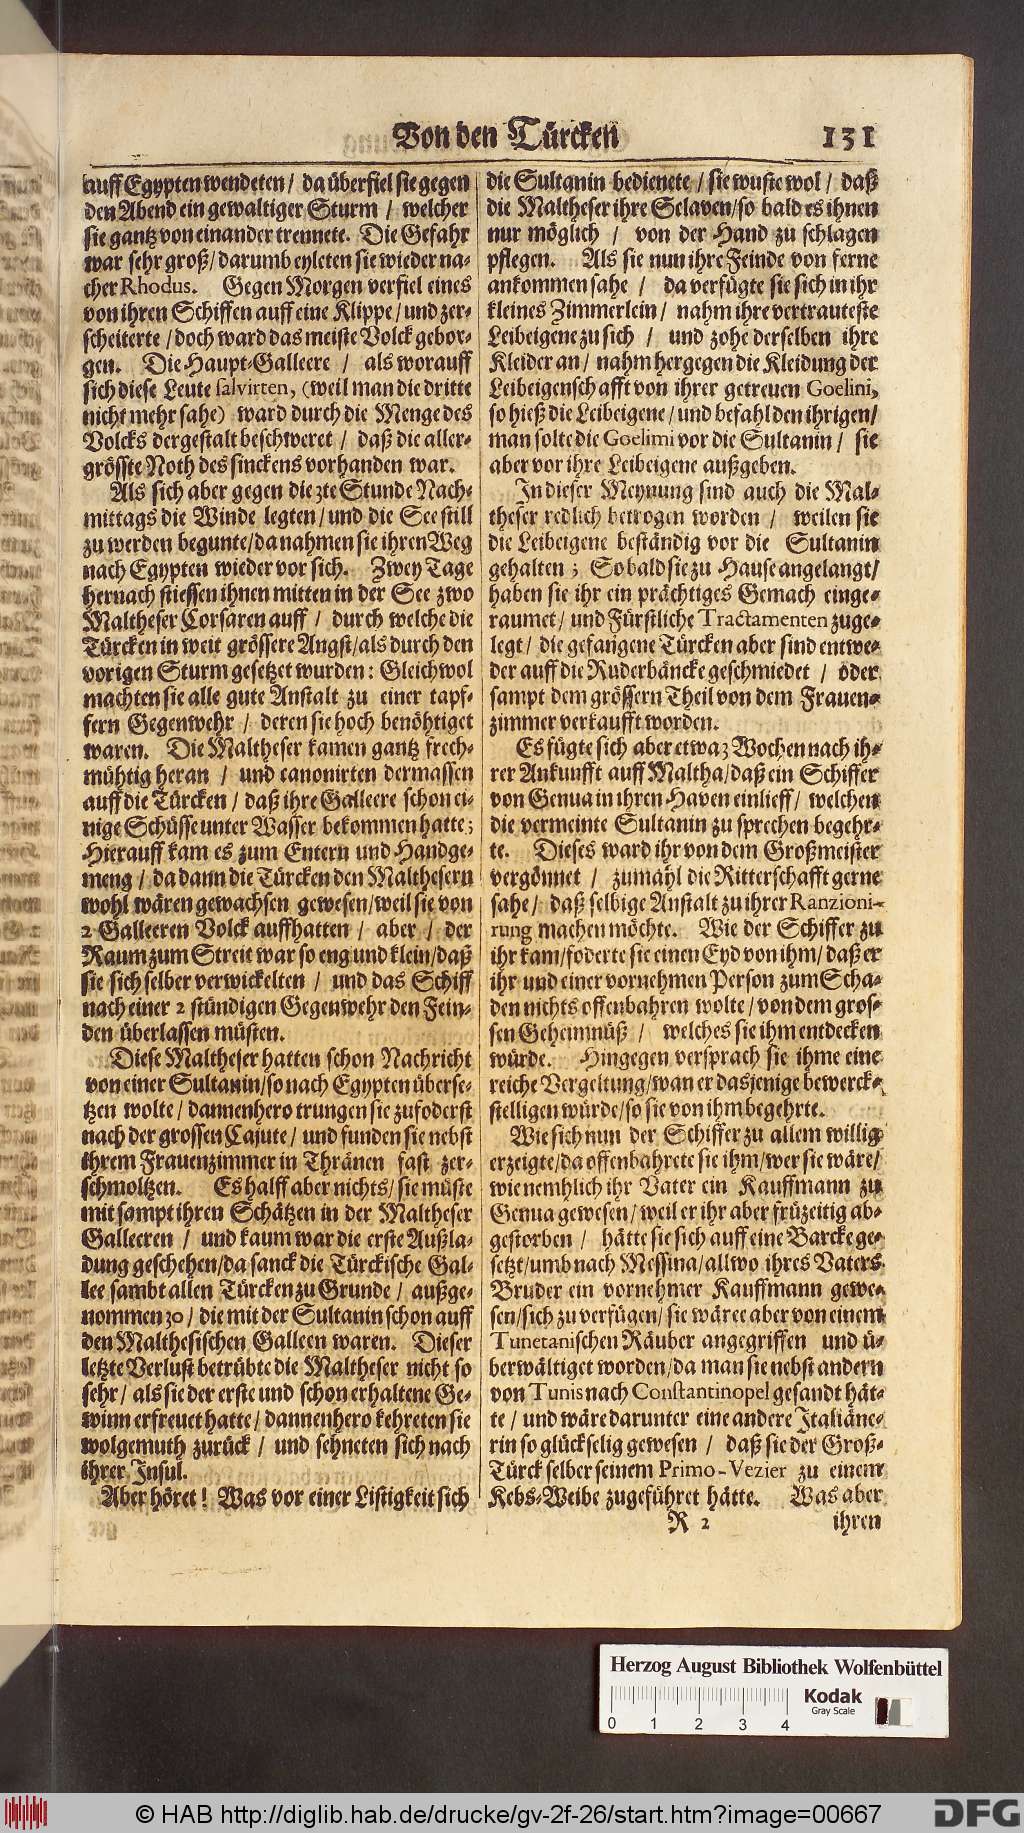 Von den Türcken 131
auff Egypten wendeten / da überfiel sie gegen
den Abend ein gewaltiger Sturm / welcher
sie gantz von einander trennete. Die Gefahr
war sehr groß / darumb eyleten sie wieder na-
cher Rhodus. Gegen Morgen verfiel eines
von ihren Schiffen auff eine Klippe / und zer-
scheiterte / doch ward das meiste Volck gebor-
gen. Die Haupt-Galleere / als worauff
sich diese Leute salvirten, (weil man die dritte
nicht mehr sahe) ward durch die Menge des
Volcks dergestalt beschweret / daß die aller-
grösste Noth des sinckens vorhanden war.
Als sich aber gegen die 2te Stunde Nach-
mittags die Winde legten / und die See still
zu werden begunte / da nahmen sie ihren Weg
nach Egypten wieder vor sich. Zwey Tage
hernach stiessen ihnen mitten in der See zwo
Maltheser Corsaren auff / durch welche die
Türcken in weit grössere Angst / als durch den
vorigen Sturm gesetzet wurden: Gleichwol
machten sie alle gute Anstalt zu einer tapf-
fern Gegenwehr / deren sie hoch benöhtiget
waren. Die Maltheser kamen gantz frech-
mühtig heran / und canonirten dermassen
auff die Türcken / daß ihre Galleere schon ei-
nige Schüsse unter Wasser bekommen hatte;
Hierauff kam es zum Entern und Handge-
meng / da dann die Türcken den Malthesern
wohl wären gewachsen gewesen / weil sie von
2 Galleeren Volck auffhatten / aber / der
Raum zum Streit war so eng und klein / daß
sie sich selber verwickelten / und das Schiff
nach einer 2 stündigen Gegenwehr den Fein-
den überlassen müsten.
Diese Maltheser hatten schon Nachricht
von einer Sultanin / so nach Egypten überse-
tzen wolte / dannenhero trungen sie zufoderst
nach der grossen Cajute / und funden sie nebst
ihrem Frauenzimmer in Thränen fast zer-
schmoltzen. Es halff aber nichts / sie müste
mit sampt ihren Schätzen in der Maltheser
Galleeren / und kaum war die erste Außla-
dung geschehen / da sanck die Türckische Gal-
lee sambt allen Türcken zu Grunde / außge-
nommen 30 / die mit der Sultanin schon auff
den Malthesischen Galleen waren. Dieser
letzte Verlust betrübte die Maltheser nicht so
sehr / als sie der erste und schon erhaltene Ge-
winn erfreuet hatte / dannenhero kehreten sie
wolgemuth zurück / und sehneten sich nach
ihrer Insul.
Aber höret! Was vor einer Listigkeit sich
die Sultanin bedienete / sie wuste wol / daß
die Maltheser ihre Sclaven / so bald es ihnen
nur möglich / von der Hand zu schlagen
pflegen. Als sie nun ihre Feinde von ferne
ankommen sahe / da verfügte sie sich in ihr
kleines Zimmerlein / nahm ihre vertrauteste
Leibeigene zu sich / und zohe derselben ihre
Kleider an / nahm hergegen die Kleidung der
Leibeigenschafft von ihrer getreuen Goelini,
so hieß die Leibeigene / und befahl den ihrigen /
man solte die Goelimi vor die Sultanin / sie
aber vor ihre Leibeigene außgeben.
In dieser Meynung sind auch die Mal-
theser redlich betrogen worden / weilen sie
die Leibeigene beständig vor die Sultanin
gehalten; So bald sie zu Hause angelangt /
haben sie ihr ein prächtiges Gemach einge-
raumet / und Fürstliche Tractamenten zuge-
legt / die gefangene Türcken aber sind entwe-
der auff die Ruderbäncke geschmiedet / oder
sampt dem grössern Theil von dem Frauen-
zimmer verkaufft worden.
Es fügte sich aber etwa 3 Wochen nach ih-
rer Ankunfft auff Maltha / daß ein Schiffer
von Genua in ihren Haven einlieff / welchen
die vermeinte Sultanin zu sprechen begehr-
te. Dieses ward ihr von dem Großmeister
vergönnet / zumahl die Ritterschafft gerne
sahe / daß selbige Anstalt zu ihrer Ranzioni-
rung machen möchte. Wie der Schiffer zu
ihr kam / foderte sie einen Eyd von ihm / daß er
ihr und einer vornehmen Person zum Scha-
den nichts offenbahren wolte / von dem gros-
sen Geheimnüß / welches sie ihm entdecken
würde. Hingegen versprach sie ihme eine
reiche Vergeltung / wan er dasjenige bewerck-
stelligen würde / so sie von ihm begehrte.
Wie sich nun der Schiffer zu allem willig
erzeigte / da offenbahrete sie ihm / wer sie wäre /
wie nemhlich ihr Vater ein Kauffmann zu
Genua gewesen / weil er ihr aber frühzeitig ab-
gestorben / hätte sie sich auff eine Barcke ge-
setzt / umb nach Messina / allwo ihres Vaters
Bruder ein vornehmer Kauffmann gewe-
sen / sich zu verfügen / sie wäree aber von einem
Tunetanischen Räuber angegriffen und ü-
berwältiget worden / da man sie nebst andern
von Tunis nach Constantinopel gesandt hät-
te / und wäre darunter eine andere Italiäne-
rin so glückselig gewesen / daß sie der Groß-
Türck selber seinem Primo-Vezier zu einem
Kebs-Weibe zugeführet hätte. Was aber
R 2 ihren
Herzog August Bibliothek Wolfenbüttel
Kodak
Gray Scale
0 1 2 3 4
© HAB http://diglib.hab.de/drucke/gv-2f-26/start.htm?image=00667
DFG